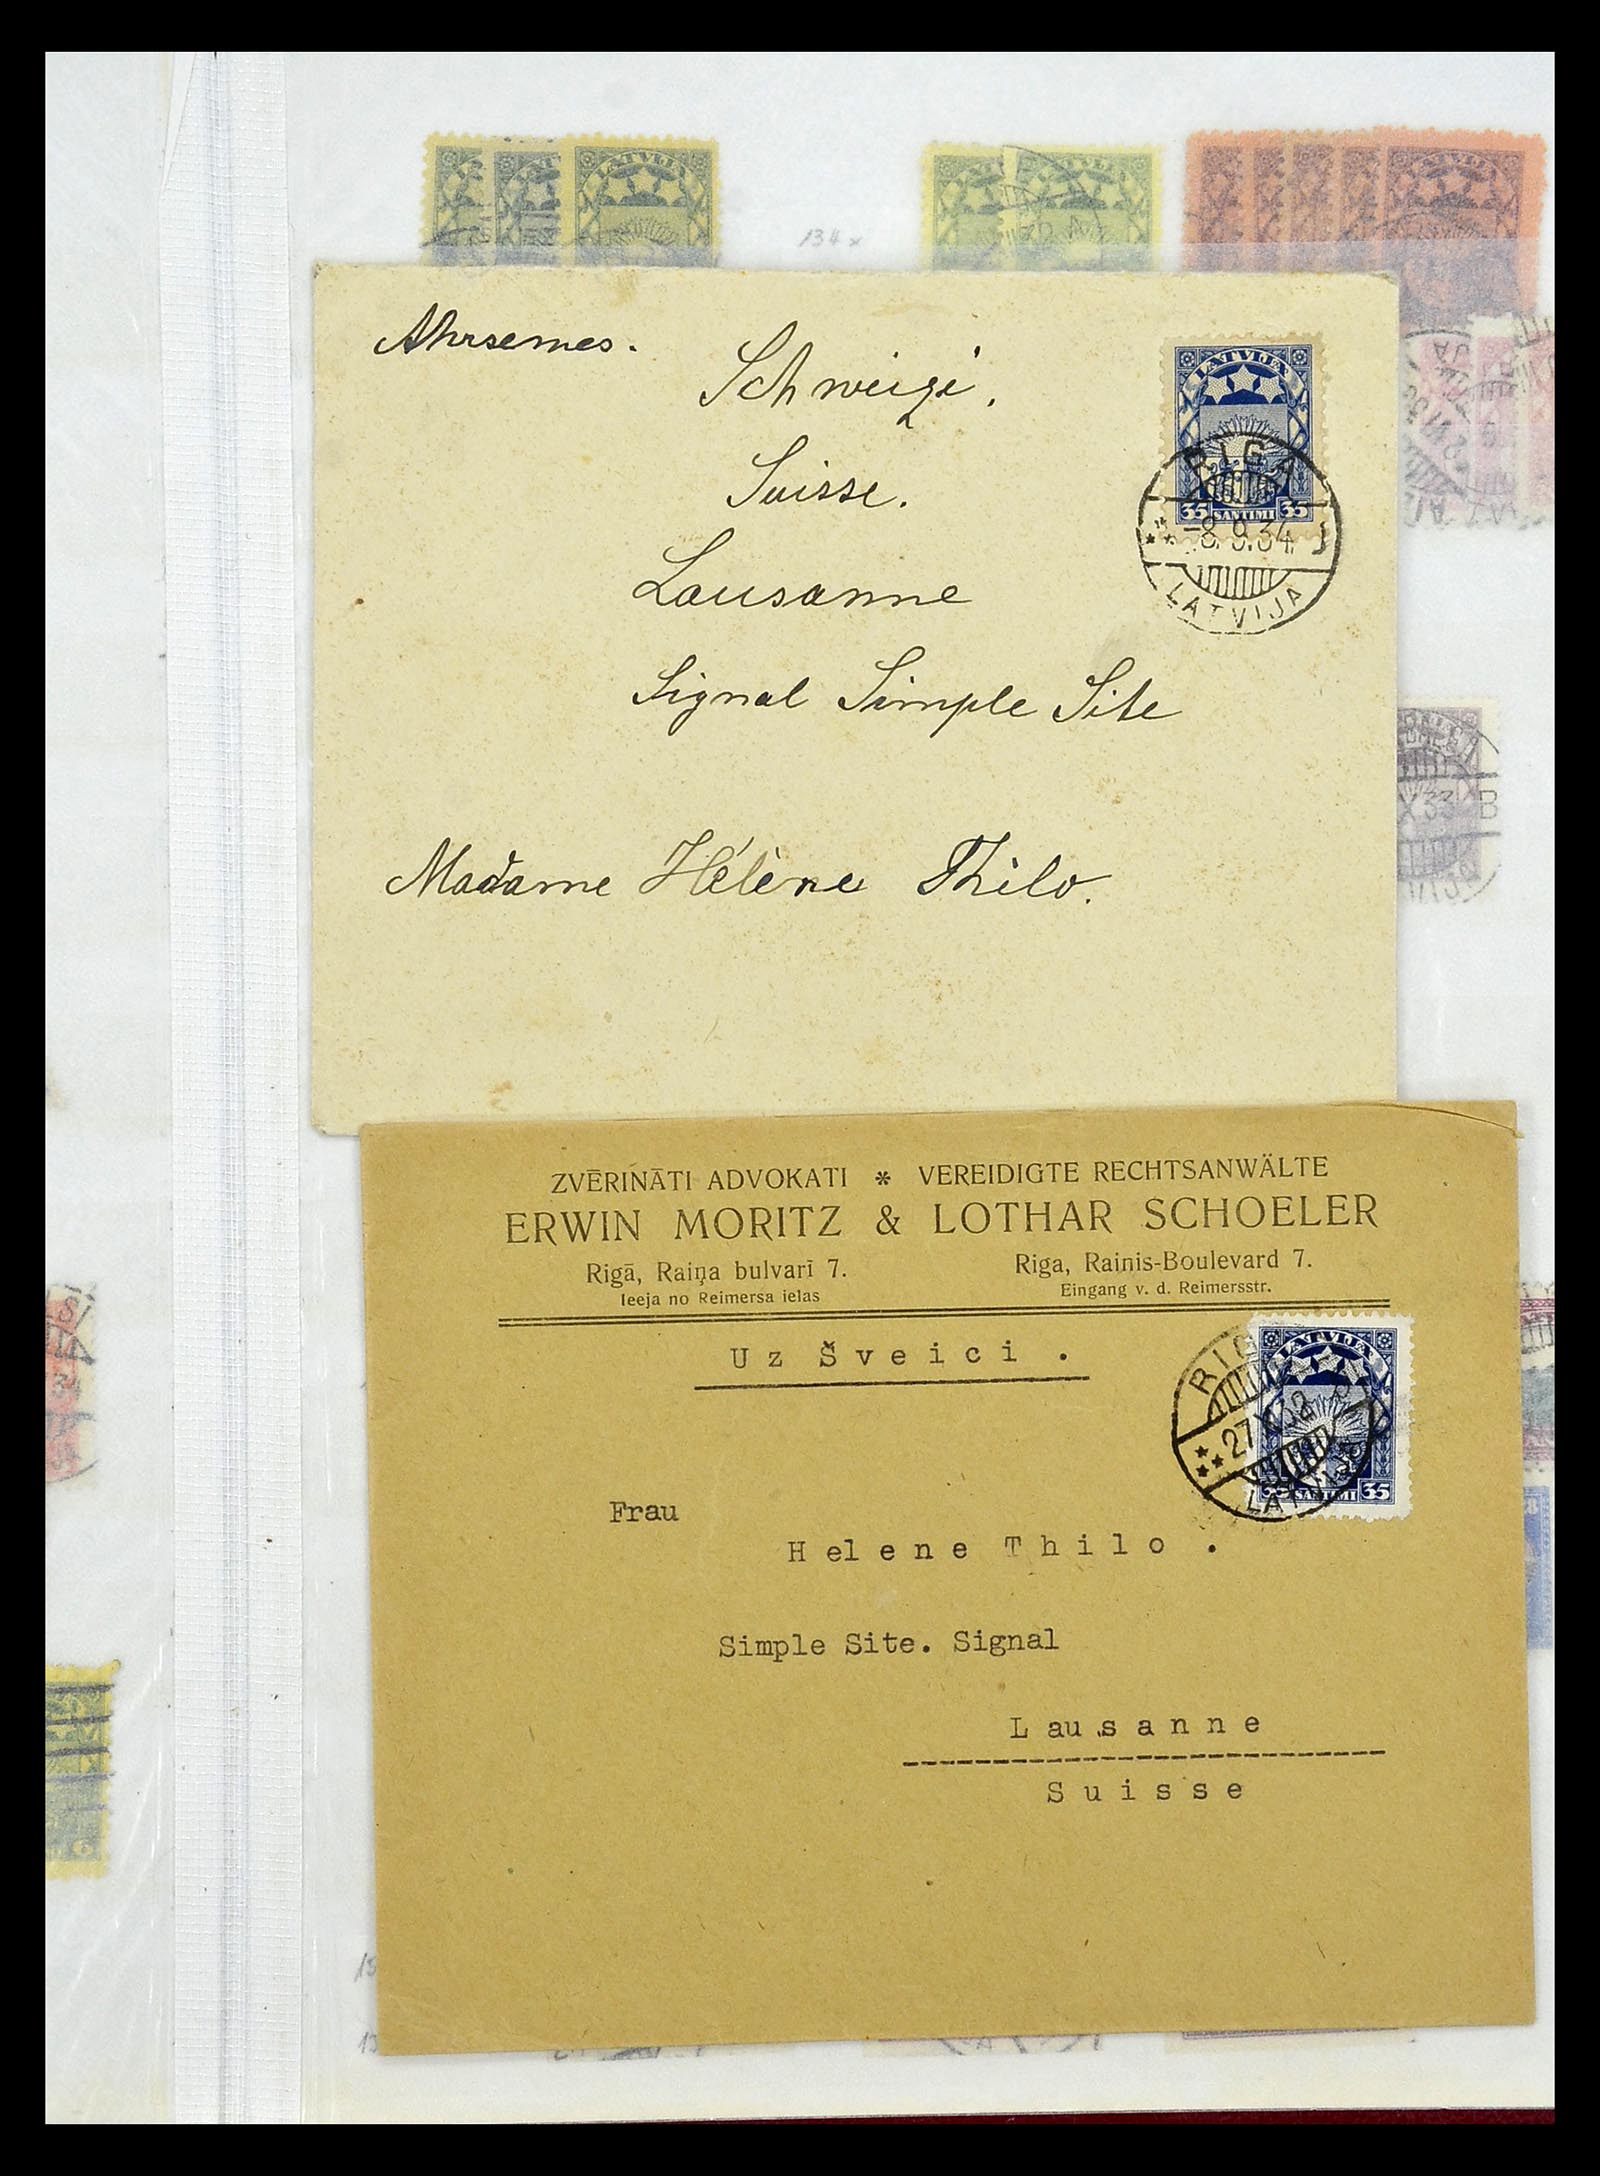 LATVIJE
134 x
Ahrsemes.
Schweizi.
Suisse.
Lausanne
Signal Simple Site
Madame Hélène Thilo.
LATVIJEJ
35 SANTIMI 35
RIGA
-8. 9. 34
LATVIJA
X33 B
ZVĒRINĀTI ADVOKATI * VEREIDIGTE RECHTSANWÄLTE
ERWIN MORITZ & LOTHAR SCHOELER
Rigā, Raiņa bulvarī 7. Riga, Rainis-Boulevard 7.
Ieeja no Reimersa ielas Eingang v. d. Reimersstr.
Uz Šveici.
RIG
27 X 32
LATVIJA
35 SANTIMI 35
Frau
Helene Thilo.
Simple Site. Signal
Lausanne
Suisse